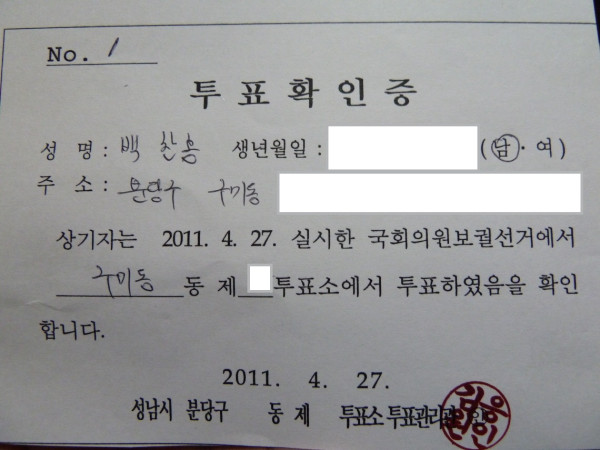 No. 1
투 표 확 인 증
성 명 : 백 찬 홍 생년월일 : (남 · 여)
주 소 : 분당구 구미동
상기자는 2011. 4. 27. 실시한 국회의원보궐선거에서
구미동 동 제 투표소에서 투표하였음을 확인
합니다.
2011. 4. 27.
성남시 분당구 동 제 투표소 투표관리관